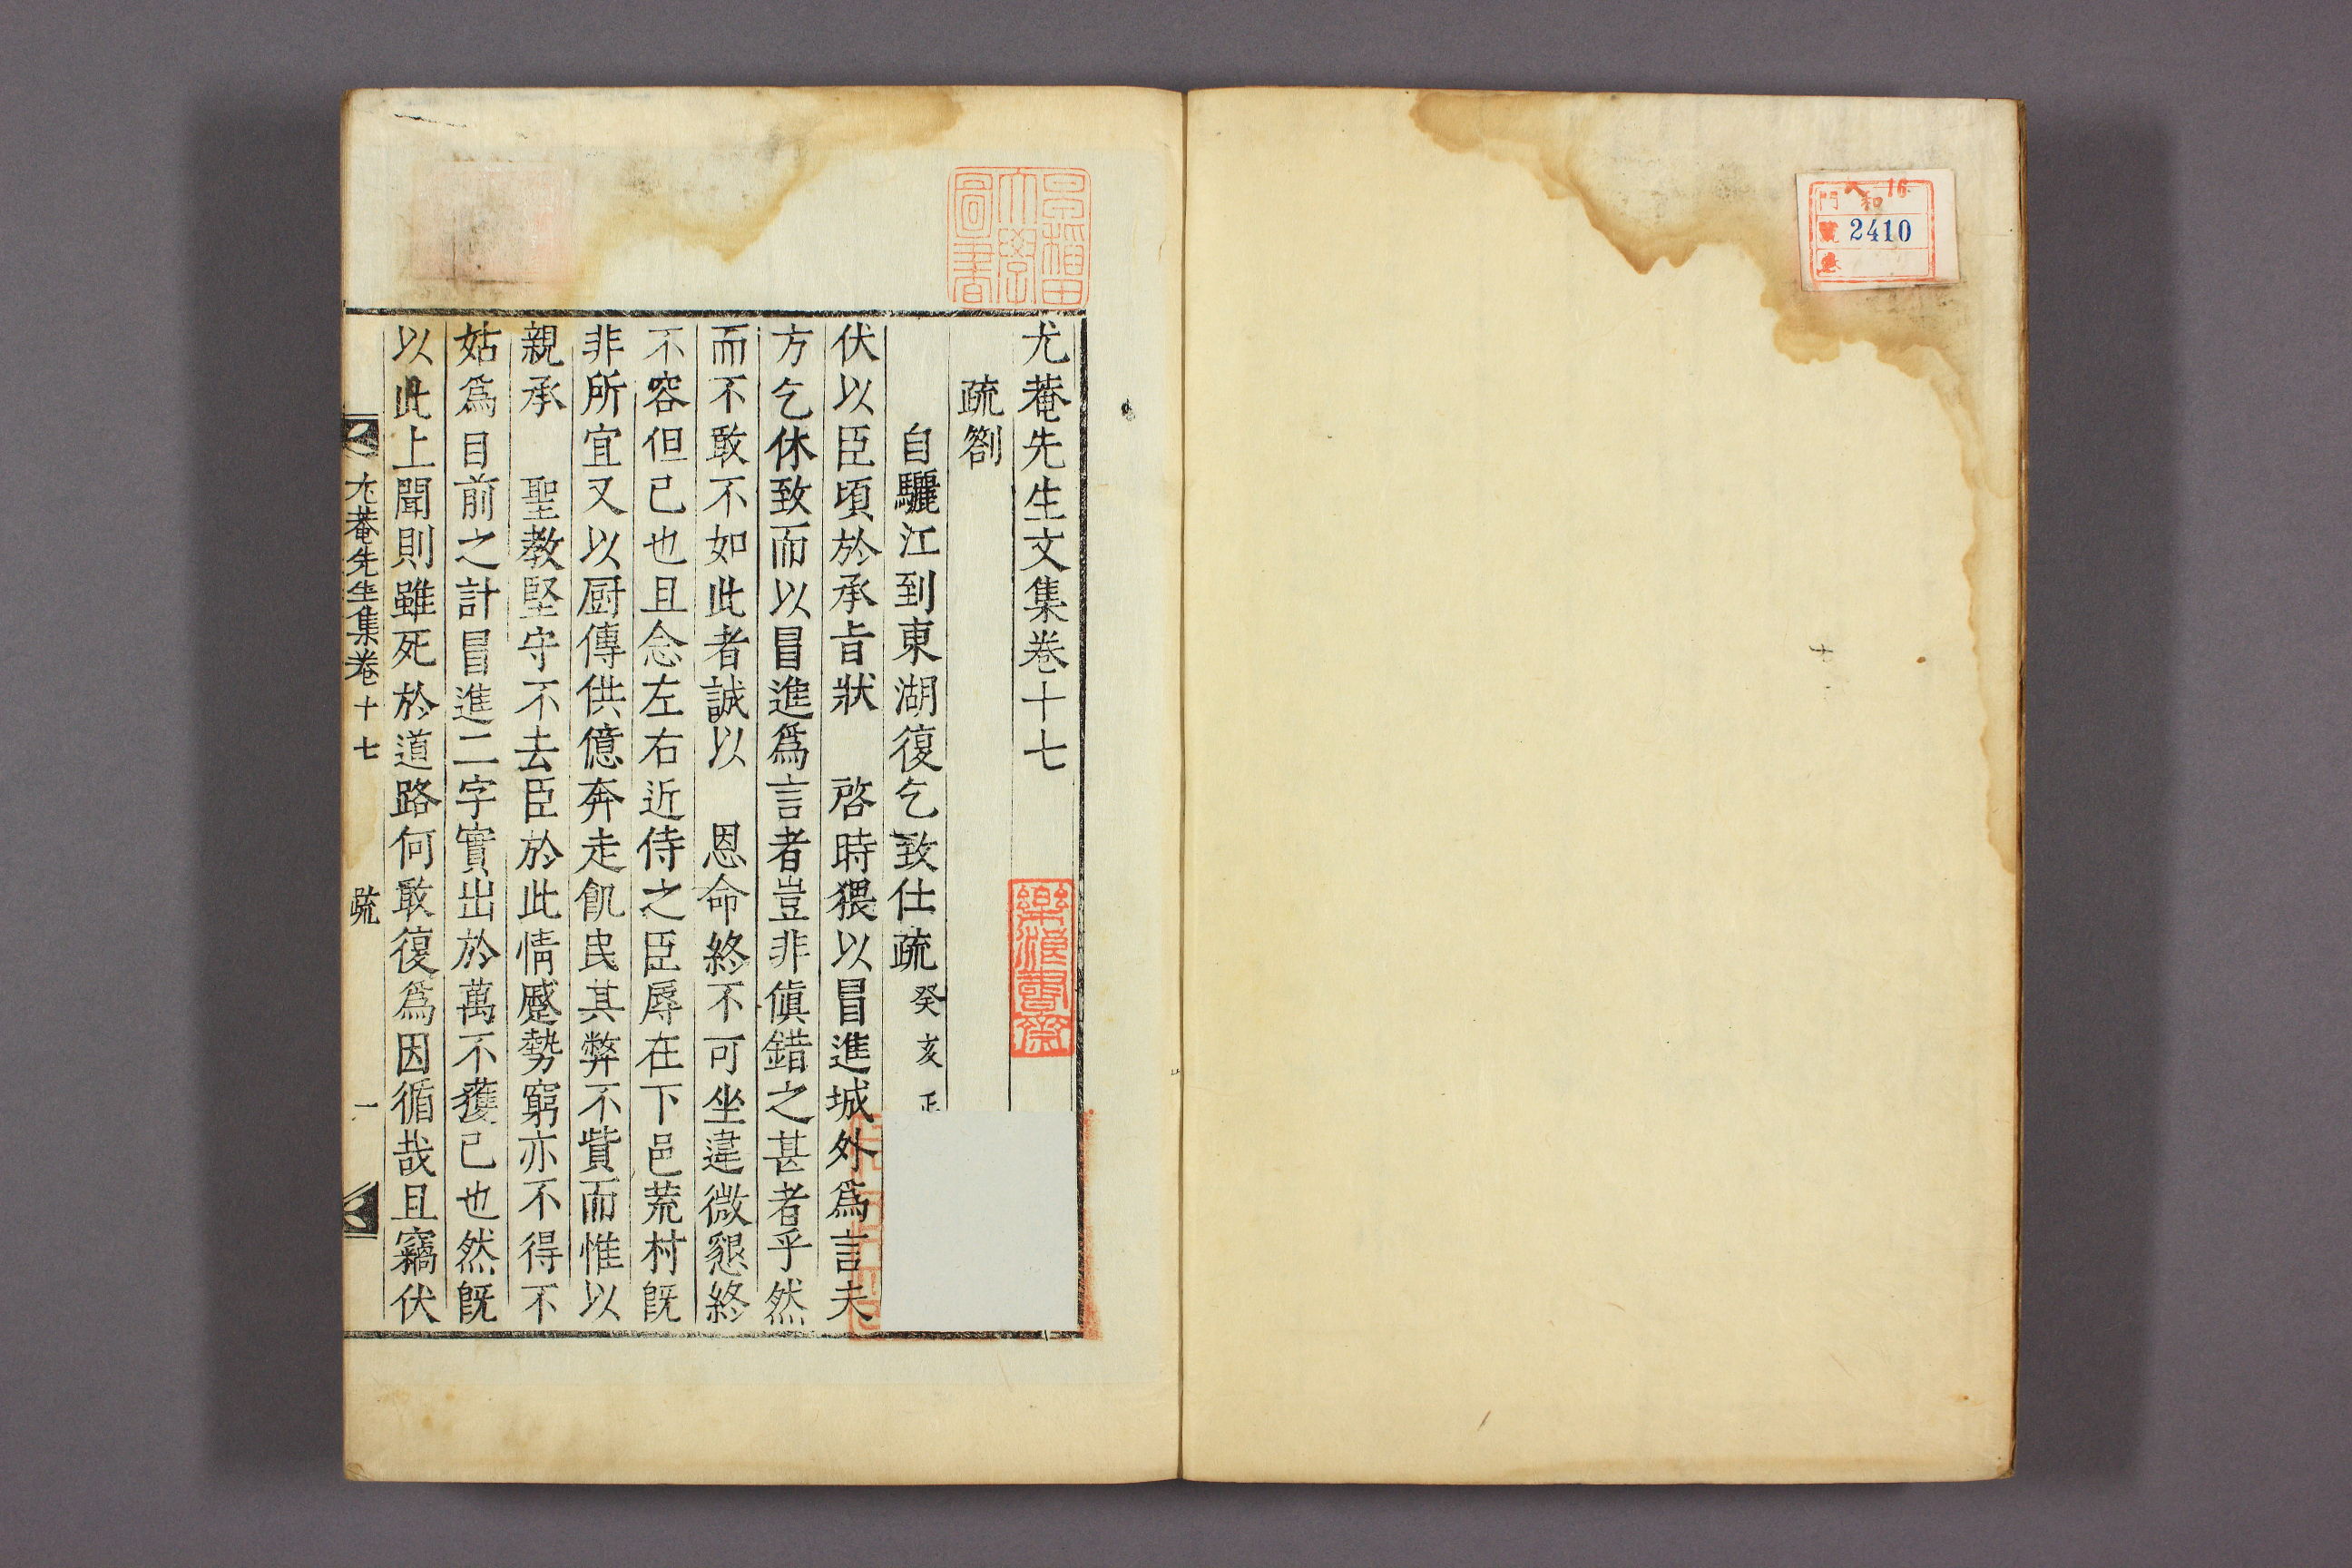 尤菴先生文集卷十七
疏劄
自驪江到東湖復乞致仕疏 癸亥正
伏以臣頃於承旨狀 啓時猥以冒進城外爲言夫
方乞休致而以冒進爲言者豈非傎錯之甚者乎然
而不敢不如此者誠以 恩命終不可坐違微懇終
不容但已也且念左右近侍之臣辱在下邑荒村旣
非所宜又以厨傳供億奔走飢民其弊不貲而惟以
親承 聖教堅守不去臣於此情蹙勢窮亦不得不
姑爲目前之計冒進二字實出於萬不獲已也然旣
以此上聞則雖死於道路何敢復爲因循哉且竊伏
尤菴先生集卷十七 疏 一
早稲田大學圖書
樂浪書齋
門 ヘ 16 和
號 2410
卷